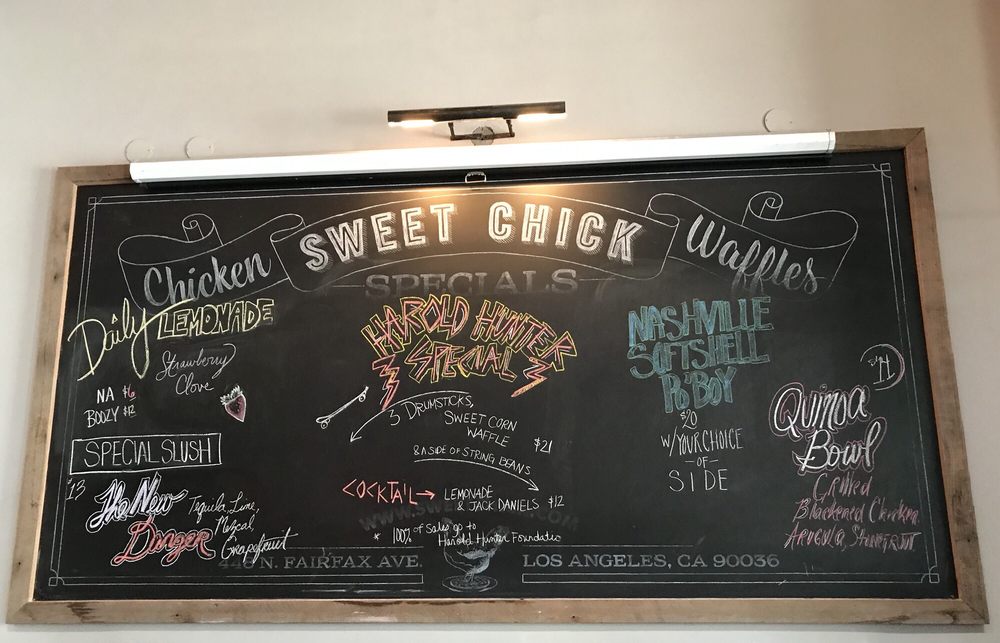 Chicken
SWEET CHICK
Waffles
SPECIALS
Daily LEMONADE
Strawberry
Clove
NA $6
BOOZY $12
SPECIAL SLUSH
$13
The New
Danger
Tequila, Lime,
Mezcal,
Grapefruit
HAROLD HUNTER
SPECIAL
3 DRUMSTICKS,
SWEET CORN
WAFFLE
$21
& A SIDE OF STRING BEANS
COCKTAIL → LEMONADE
& JACK DANIELS $12
* 100% of Sales go to
Harold Hunter Foundation
NASHVILLE
SOFTSHELL
Po'BOY
$20
W/ YOUR CHOICE
-OF-
SIDE
Quinoa
Bowl
Grilled
Blackened Chicken,
Arugula,
N. FAIRFAX AVE.
LOS ANGELES, CA 90036